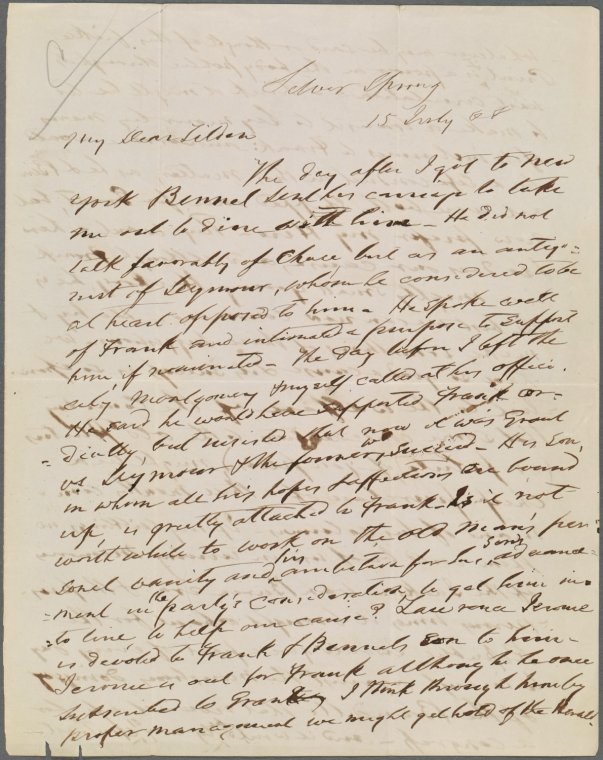 Silver Spring
15 July 68
My Dear Tilden
The day after I got to New
York Bennet sent his carriage to take
me out to dine with him - He did not
talk favorably of Chase but as an antag=
nist of Seymour, whom he considered to be
at heart opposed to him - He spoke well
of Frank and intimated a purpose to support
him, if nominated - The day before I left the
city Montgomery & myself called at his office.
He said he would have supported Frank cor-
=dially but insisted that now it was Grant
vs Seymour & the former would succeed - His Son,
in whom all his hopes & affections are bound
up, is greatly attached to Frank - Is it not
worth while to work on the old mans per=
sonal vanity and his ambition for his sons advance=
ment in the party's consideration to get him in=
=to line to help our cause? Lawrence Jerome
is devoted to Frank & Bennets son to him -
Jerome is out for Frank although he once
subscribed to Grant I think through him by
proper management we might get hold of the Herald